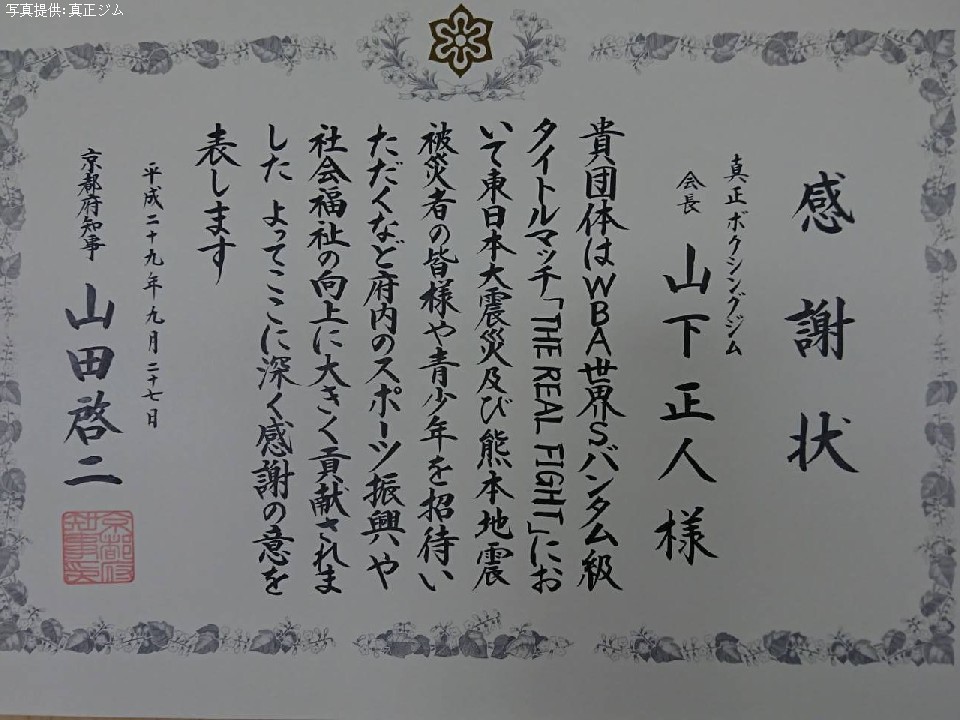 写真提供:真正ジム
感謝状
真正ボクシングジム
会長 山下正人様
貴団体はWBA世界Sバンタム級
タイトルマッチ「THE REAL FIGHT」にお
いて東日本大震災及び熊本地震
被災者の皆様や青少年を招待い
ただくなど府内のスポーツ振興や
社会福祉の向上に大きく貢献されま
した よってここに深く感謝の意を
表します
平成二十九年九月二十七日
京都府知事 山田啓二
京都府知事印